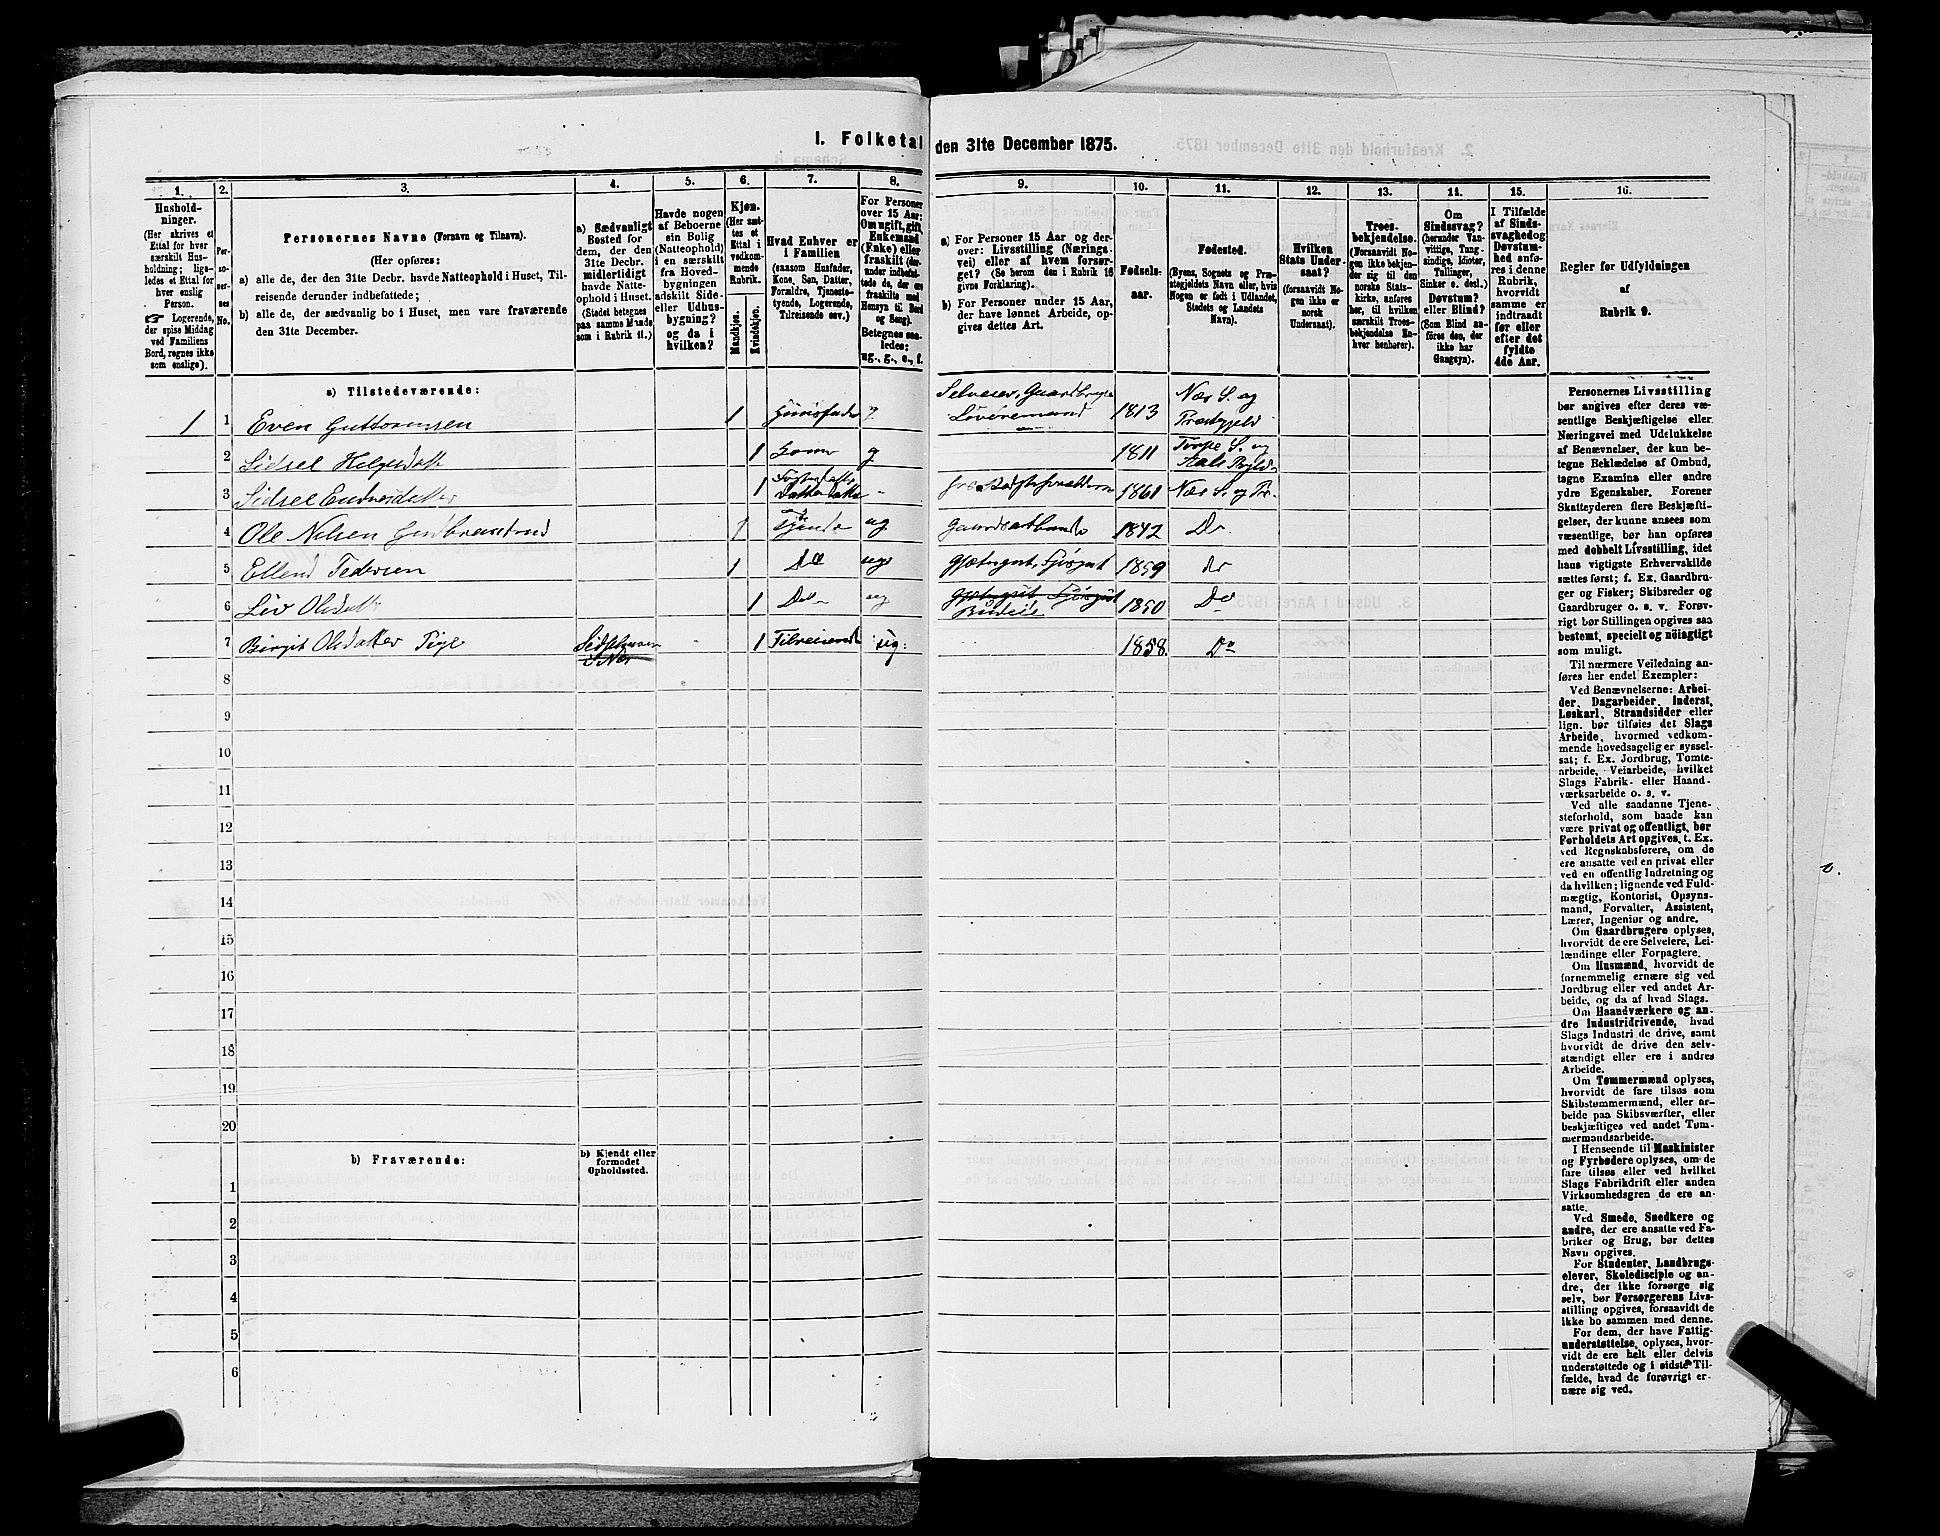 I. Folketal den 31te December 1875.
1.
2.
3.
4.
5.
6.
7.
8.
9.
10.
11.
12.
13.
14.
15.
16.
Hushold-
ninger.
(Her skrives et
Ettal for hver
særskilt Hus-
holdning; lige-
ledes et Ettal for
hver enslig
Person.
☞ Logerende,
der spise Middag
ved Familiens
Bord, regnes ikke
som enslige).
Per-
so-
ner-
nes
No.
Personernes Navne (Fornavn og Tilnavn).
(Her opføres:
a) alle de, der den 31te Decbr. havde Natteophold i Huset, Til-
reisende derunder indbefattede;
b) alle de, der sædvanlig bo i Huset, men vare fraværende
den 31te December.
a) Sædvanligt
Bosted for
dem, der den
31te Decbr.
midlertidigt
havde Natte-
ophold i Huset.
(Stedet betegnes
paa samme Maade
som i Rubrik 11.)
Havde nogen
af Beboerne
sin Bolig
(Natteophold)
i en særskilt
fra Hoved-
bygningen
adskilt Side-
eller Udhus-
bygning?
og da i
hvilken?
Kjøn.
(Her sæt-
tes et
Ettal i
vedkom-
mende
Rubrik.
Mandkjøn.
Kvindekjøn.
Hvad Enhver er
i Familien
(saasom Husfader,
Kone, Søn, Datter,
Forældre, Tjeneste-
tyende, Logerende,
Tilreisende osv.)
For Personer
over 15 Aar:
Om ugift, gift,
Enkemand
(Enke) eller
fraskilt
Betegnes saa-
ledes:
ug., g., e., f.
a) For Personer 15 Aar og der-
over: Livsstilling (Nærings-
vei) eller af hvem forsør-
get? (Se herom den i Rubrik 16
givne Forklaring).
b) For Personer under 15 Aar,
der have lønnet Arbeide, op-
gives dettes Art.
Fødsels-
aar.
Fødested.
(Byens, Sognets og Præ-
stegjeldets Navn eller, hvis
Nogen er født i Udlandet,
Stedets og Landets
Navn).
Hvilken
Stats Under-
saat?
(forsaavidt No-
gen ikke er
norsk
Undersaat).
Troes-
bekjendelse.
(Forsaavidt No-
gen ikke bekjen-
der sig til den
norske Stats-
kirke, anføres
her, til hvilken
særskilt Troes-
bekjendelse En-
hver henhører).
Om
Sindssvag?
(herunder Van-
vittige, Tung-
sindige, Idioter,
Tullinger,
Sinker o. desl.)
Døvstum?
eller Blind?
(Som Blind an-
føres den, der
ikke har
Gangsyn).
I Tilfælde
af Sinds-
svaghed og
Døvstum-
hed anfø-
res i denne
Rubrik,
hvorvidt
samme er
indtraadt
før eller
efter det
fyldte
4de Aar.
Regler for Udfyldningen
af
Rubrik 9.
a) Tilstedeværende:
1
1
Even Guttormsen
1
Selveier, Gaardbruger
1813
Næs S. og
Præstgjeld
2
Sidsel Helgesdatter
1
Kone
g
1811
Torpe S. og
Aals
3
Sidsel Endresdatter
1
1861
Næs S. og Pr.
4
Ole Nilsen
1
ug
1842
Do
5
Ellend Pedersen
1
Do
ug
1859
do
6
Liv Olsdatter
1
Do
ug
Budeie
1850
Do
7
Birgit Olsdatter
1
Tilreisende
ug:
1858.
Do
8
9
10
11
12
13
14
15
16
17
18
19
20
b) Fraværende:
b) Kjendt eller
formodet
Opholdssted.
1
2
3
4
5
6
Personernes Livsstilling
bør angives efter deres væ-
sentlige Beskjæftigelse eller
Næringsvei med Udelukkelse
af Benævnelser, der kun be-
tegne Beklædelse af Ombud,
tagne Examina eller andre
ydre Egenskaber. Forener
Skatteyderen flere Beskjæfti-
gelser, der kunne ansees som
væsentlige, bør han opføres
med dobbelt Livsstilling, idet
hans vigtigste Erhvervskilde
sættes først; f. Ex. Gaardbru-
ger og Fisker; Skibsreder og
Gaardbruger o. s. v. Forøv-
rigt bør Stillingen opgives saa
bestemt, specielt og nøiagtigt
som muligt.
Til nærmere Veiledning an-
føres her endel Exempler:
Ved Benævnelserne: Arbei-
der, Dagarbeider, Inderst,
Løskarl, Strandsidder eller
lign. bør tilføies det Slags
Arbeide, hvormed vedkom-
mende hovedsagelig er syssel-
sat; f. Ex. Jordbrug, Tomte-
arbeide, Veiarbeide, hvilket
Slags Fabrik- eller Haand-
værksarbeide o. s. v.
Ved alle saadanne Tjene-
steforhold, som baade kan
være privat og offentligt, bør
Forholdets Art opgives, t. Ex.
ved Regnskabsførere, om de
ere ansatte ved en privat eller
ved en offentlig Indretning og
da hvilken; lignende ved Fuld-
mægtig, Kontorist, Opsyns-
mand, Forvalter, Assistent,
Lærer, Ingeniør og andre.
Om Gaardbrugere oplyses,
hvorvidt de ere Selveiere, Lei-
lændinge eller Forpagtere.
Om Husmænd, hvorvidt de
fornemmelig ernære sig ved
Jordbrug eller ved andet Ar-
beide, og da af hvad Slags.
Om Haandværkere og an-
dre Industridrivende, hvad
Slags Industri de drive, samt
hvorvidt de drive den selv-
stændigt eller ere i andres
Arbeide.
Om Tømmermænd oplyses,
hvorvidt de fare tilsøs som
Skibstømmermænd, eller ar-
beide paa Skibsværfter, eller
beskjæftiges ved andet Tøm-
mermandsarbeide.
I Henseende til Maskinister
og Fyrbødere oplyses, om de
fare tilsøs eller ved hvilket
Slags Fabrikdrift eller anden
Virksomhedsgren de ere an-
satte.
Ved Smede, Snedkere og
andre, der ere ansatte ved Fa-
briker og Brug, bør dettes
Navn opgives.
For Studenter, Landbrugs-
elever, Skoledisciple og an-
dre, der ikke forsørge sig
selv, bør Forsørgerens Livs-
stilling opgives, forsaavidt de
ikke bo sammen med denne.
For dem, der have Fattig-
understøttelse, oplyses, hvor-
vidt de ere helt eller delvis
understøttede og i sidste Til-
fælde, hvad de forøvrigt er-
nære sig ved.